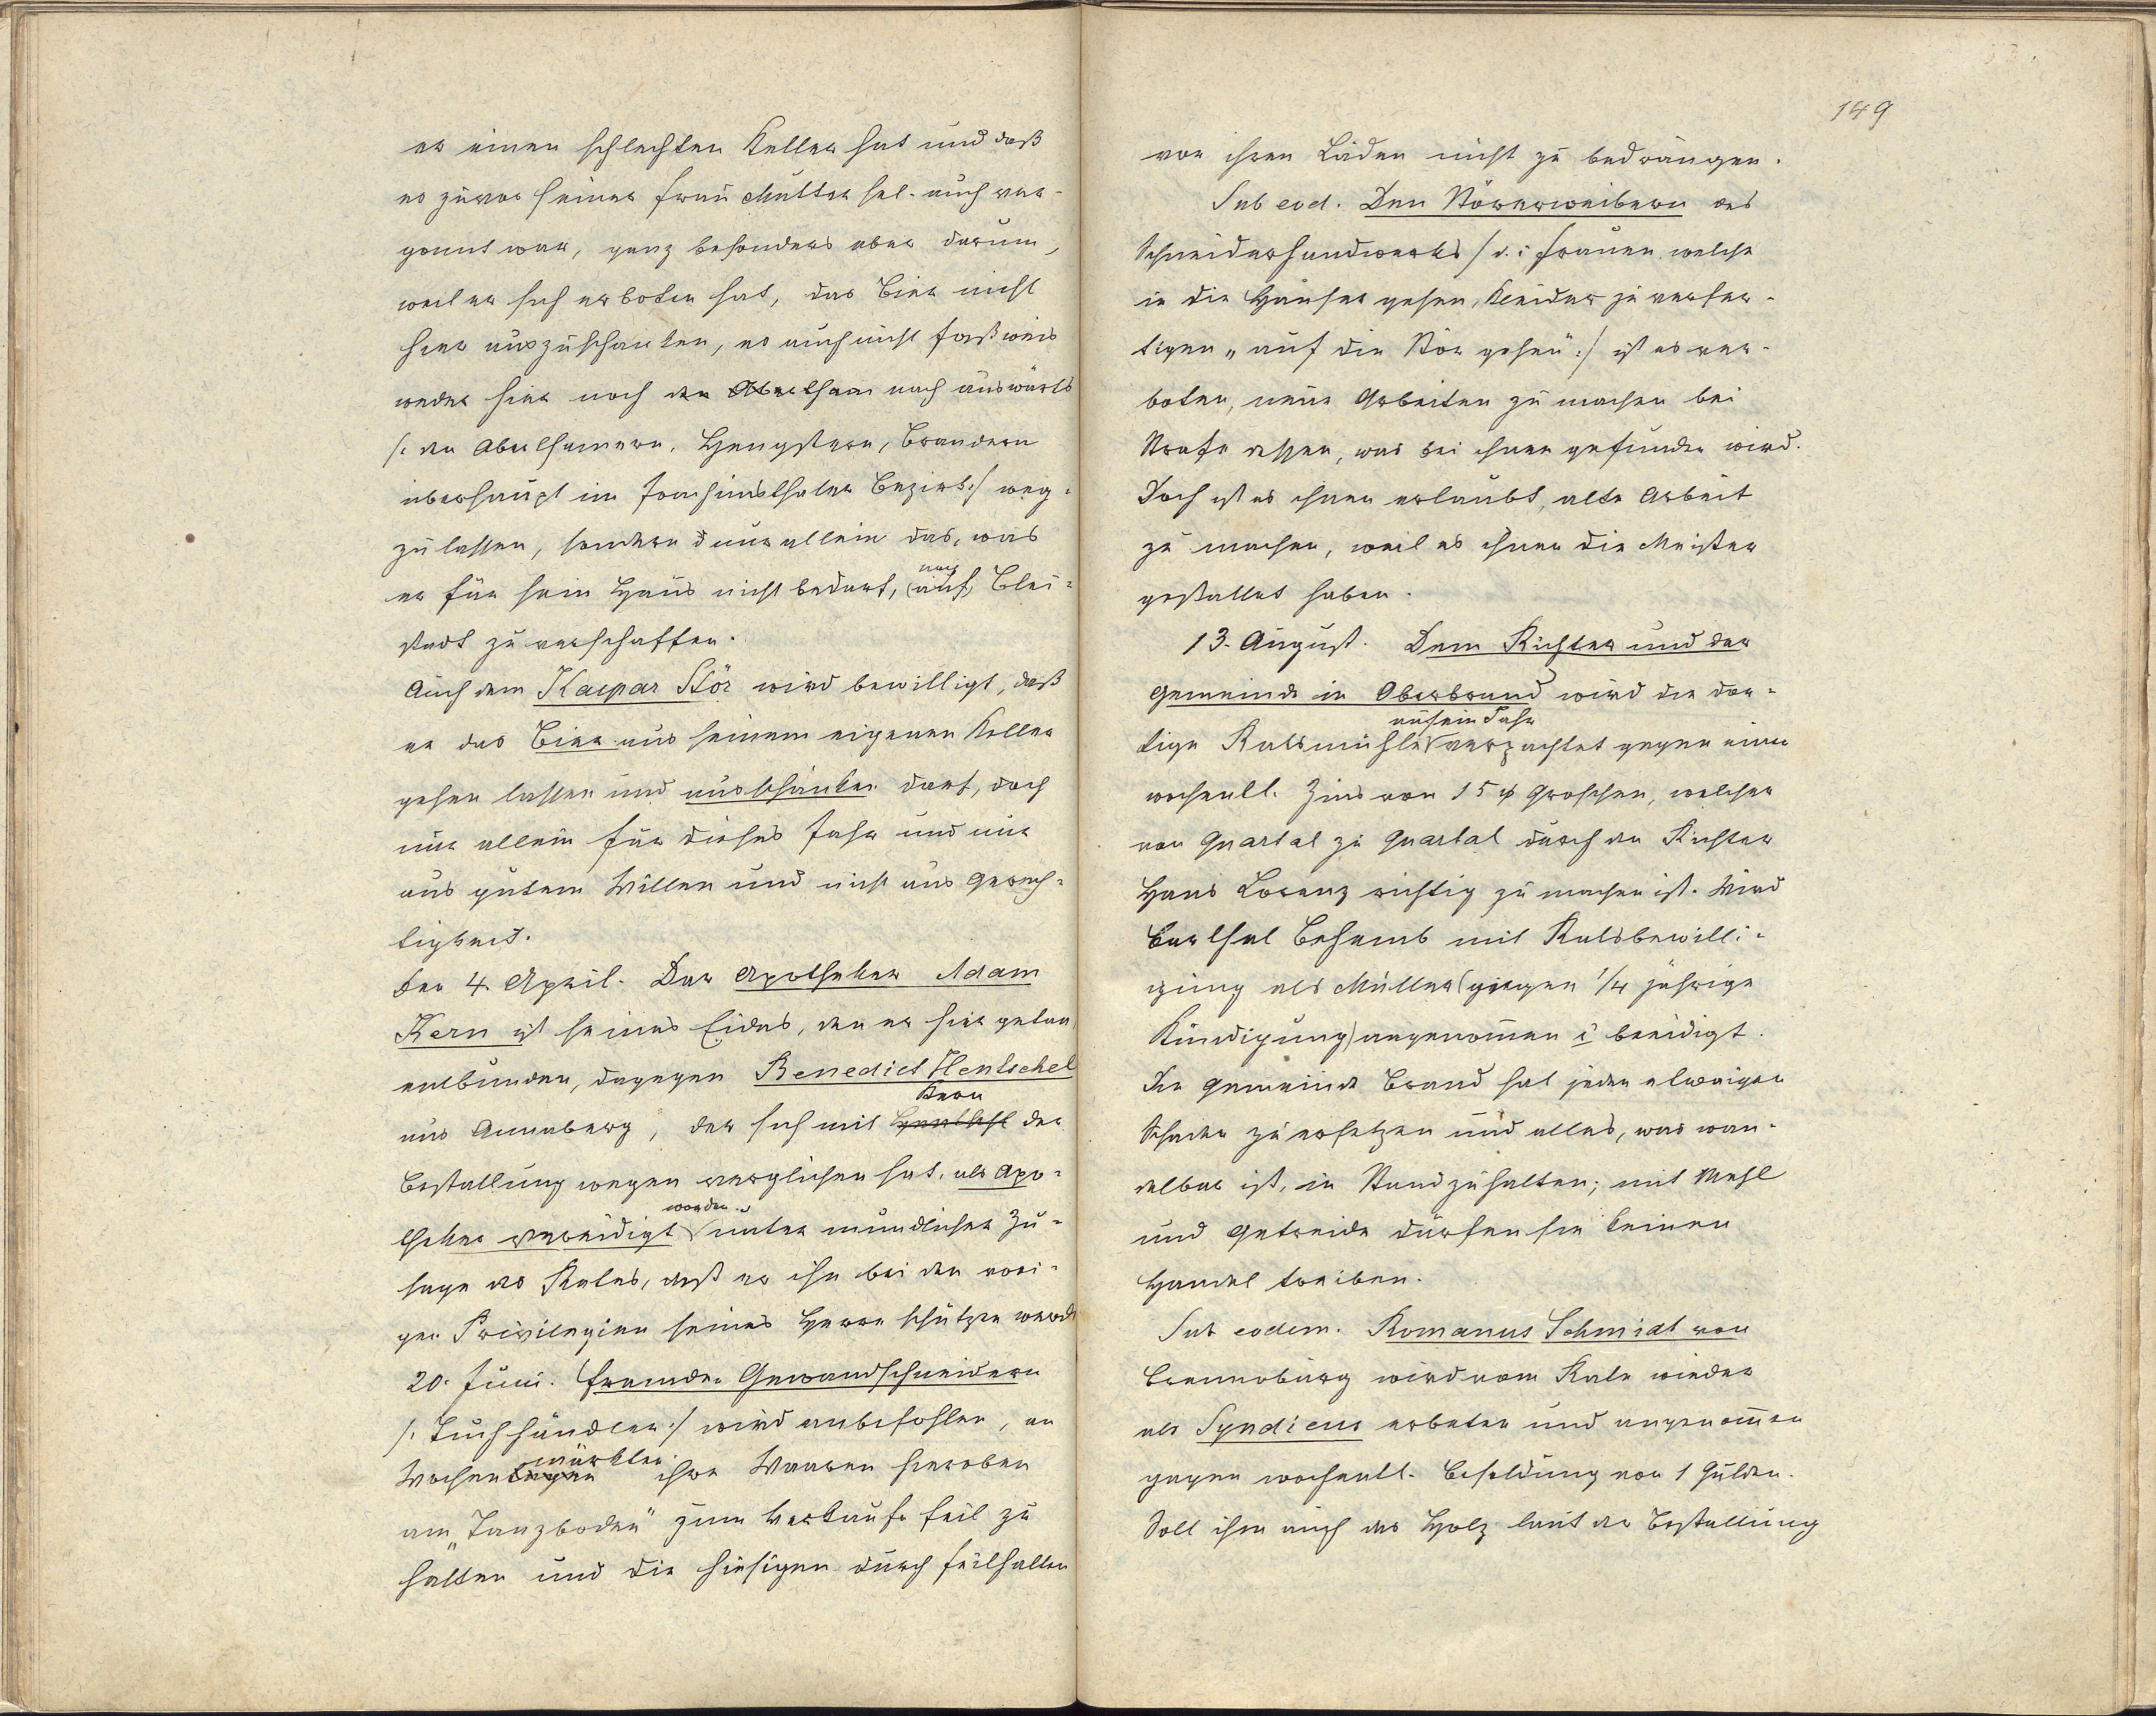 er einen schlechten Keller hat und daß
es zuvor seiner Frau Mutter sel. auch ver-
gonnt war, ganz besonders aber darum,
weil er sich erboten hat, das Bier nicht
hier auszuschänken, es auch nicht faßweis
weder hier noch den Aberthan nach auswärts
/: den Aberthamern, Hengstern, Brandern
überhaupt im Joachimsthaler Bezirk :/ weg-
zulassen, sondern nur allein das, was
er für sein Haus nicht bedarf, (auf) nach Blei-
stadt zu verschaffen.
Auch dem Kaspar Stör wird bewilligt, daß
er das Bier aus seinem eigenen Keller
gehen lassen und ausschänken darf, doch
nur allein für dieses Jahr und nur
aus gutem Willen und nicht aus Gerech-
tigkeit.
Den 4. April. Der Apotheker Adam
Kern ist seines Eides, den er hier getan
entbunden, dagegen Benedict Hentschel
aus Annaberg, der sich mit Hentschl Kern der
Bestallung wegen verglichen hat, als Apo-
theker vereidigt worden unter mündlicher Zu-
sage des Rates, daß er ihn bei den vori-
gen Privilegien seines Herrn schützen werde
20. Juni. Fremden Gewandschneidern
/: Tuchhändler :/ wird anbefohlen, an
Wochenmärkten ihre Waaren hieroben
am „Tanzboden" zum Verkaufe feil zu
halten und die hiesigen durch Feilhalten
149
vor ihren Läden nicht zu bedrängen.
Sub eod. Den Störerweibern des
Schneiderhandwerks /: d.i. Frauen welche
in die Häuser gehen, Kleider zu verfer-
tigen „auf die Stör gehen" :/ ist es ver-
boten, neue Arbeiten zu machen bei
Strafe dessen, was bei ihnen gefunden wird.
Doch ist es ihnen erlaubt, alte Arbeit
zu machen, weil es ihnen die Meister
gestattet haben.
13. August. Dem Richter und der
Gemeinde in Oberbrand wird die dor-
tige Ratsmühle auf ein Jahr verpachtet gegen einen
wochentl. Zins von 15 Groschen, welcher
von Quartal zu Quartal durch den Richter
Hans Lorenz richtig zu machen ist. Wird
Barthel Behemb mit Ratsbewilli-
gung als Müller (gegen 1/4 jährige
Kündigung) angenommen & beeidigt.
Die Gemeinde Brand hat jeden etwaigen
Schaden zu ersetzen und alles, was wan-
delbar ist, in Stand zu halten; mit Mehl
und Getreide dürfen sie keinen
Handel treiben.
Sub eodem. Romanus Schmidt von
Brennoburg wird vom Rate wieder
als Syndicus erbeten und angenommen
gegen wochentl. Besoldung von 1 Gulden.
Soll ihm auch das Holz laut der Bestallung